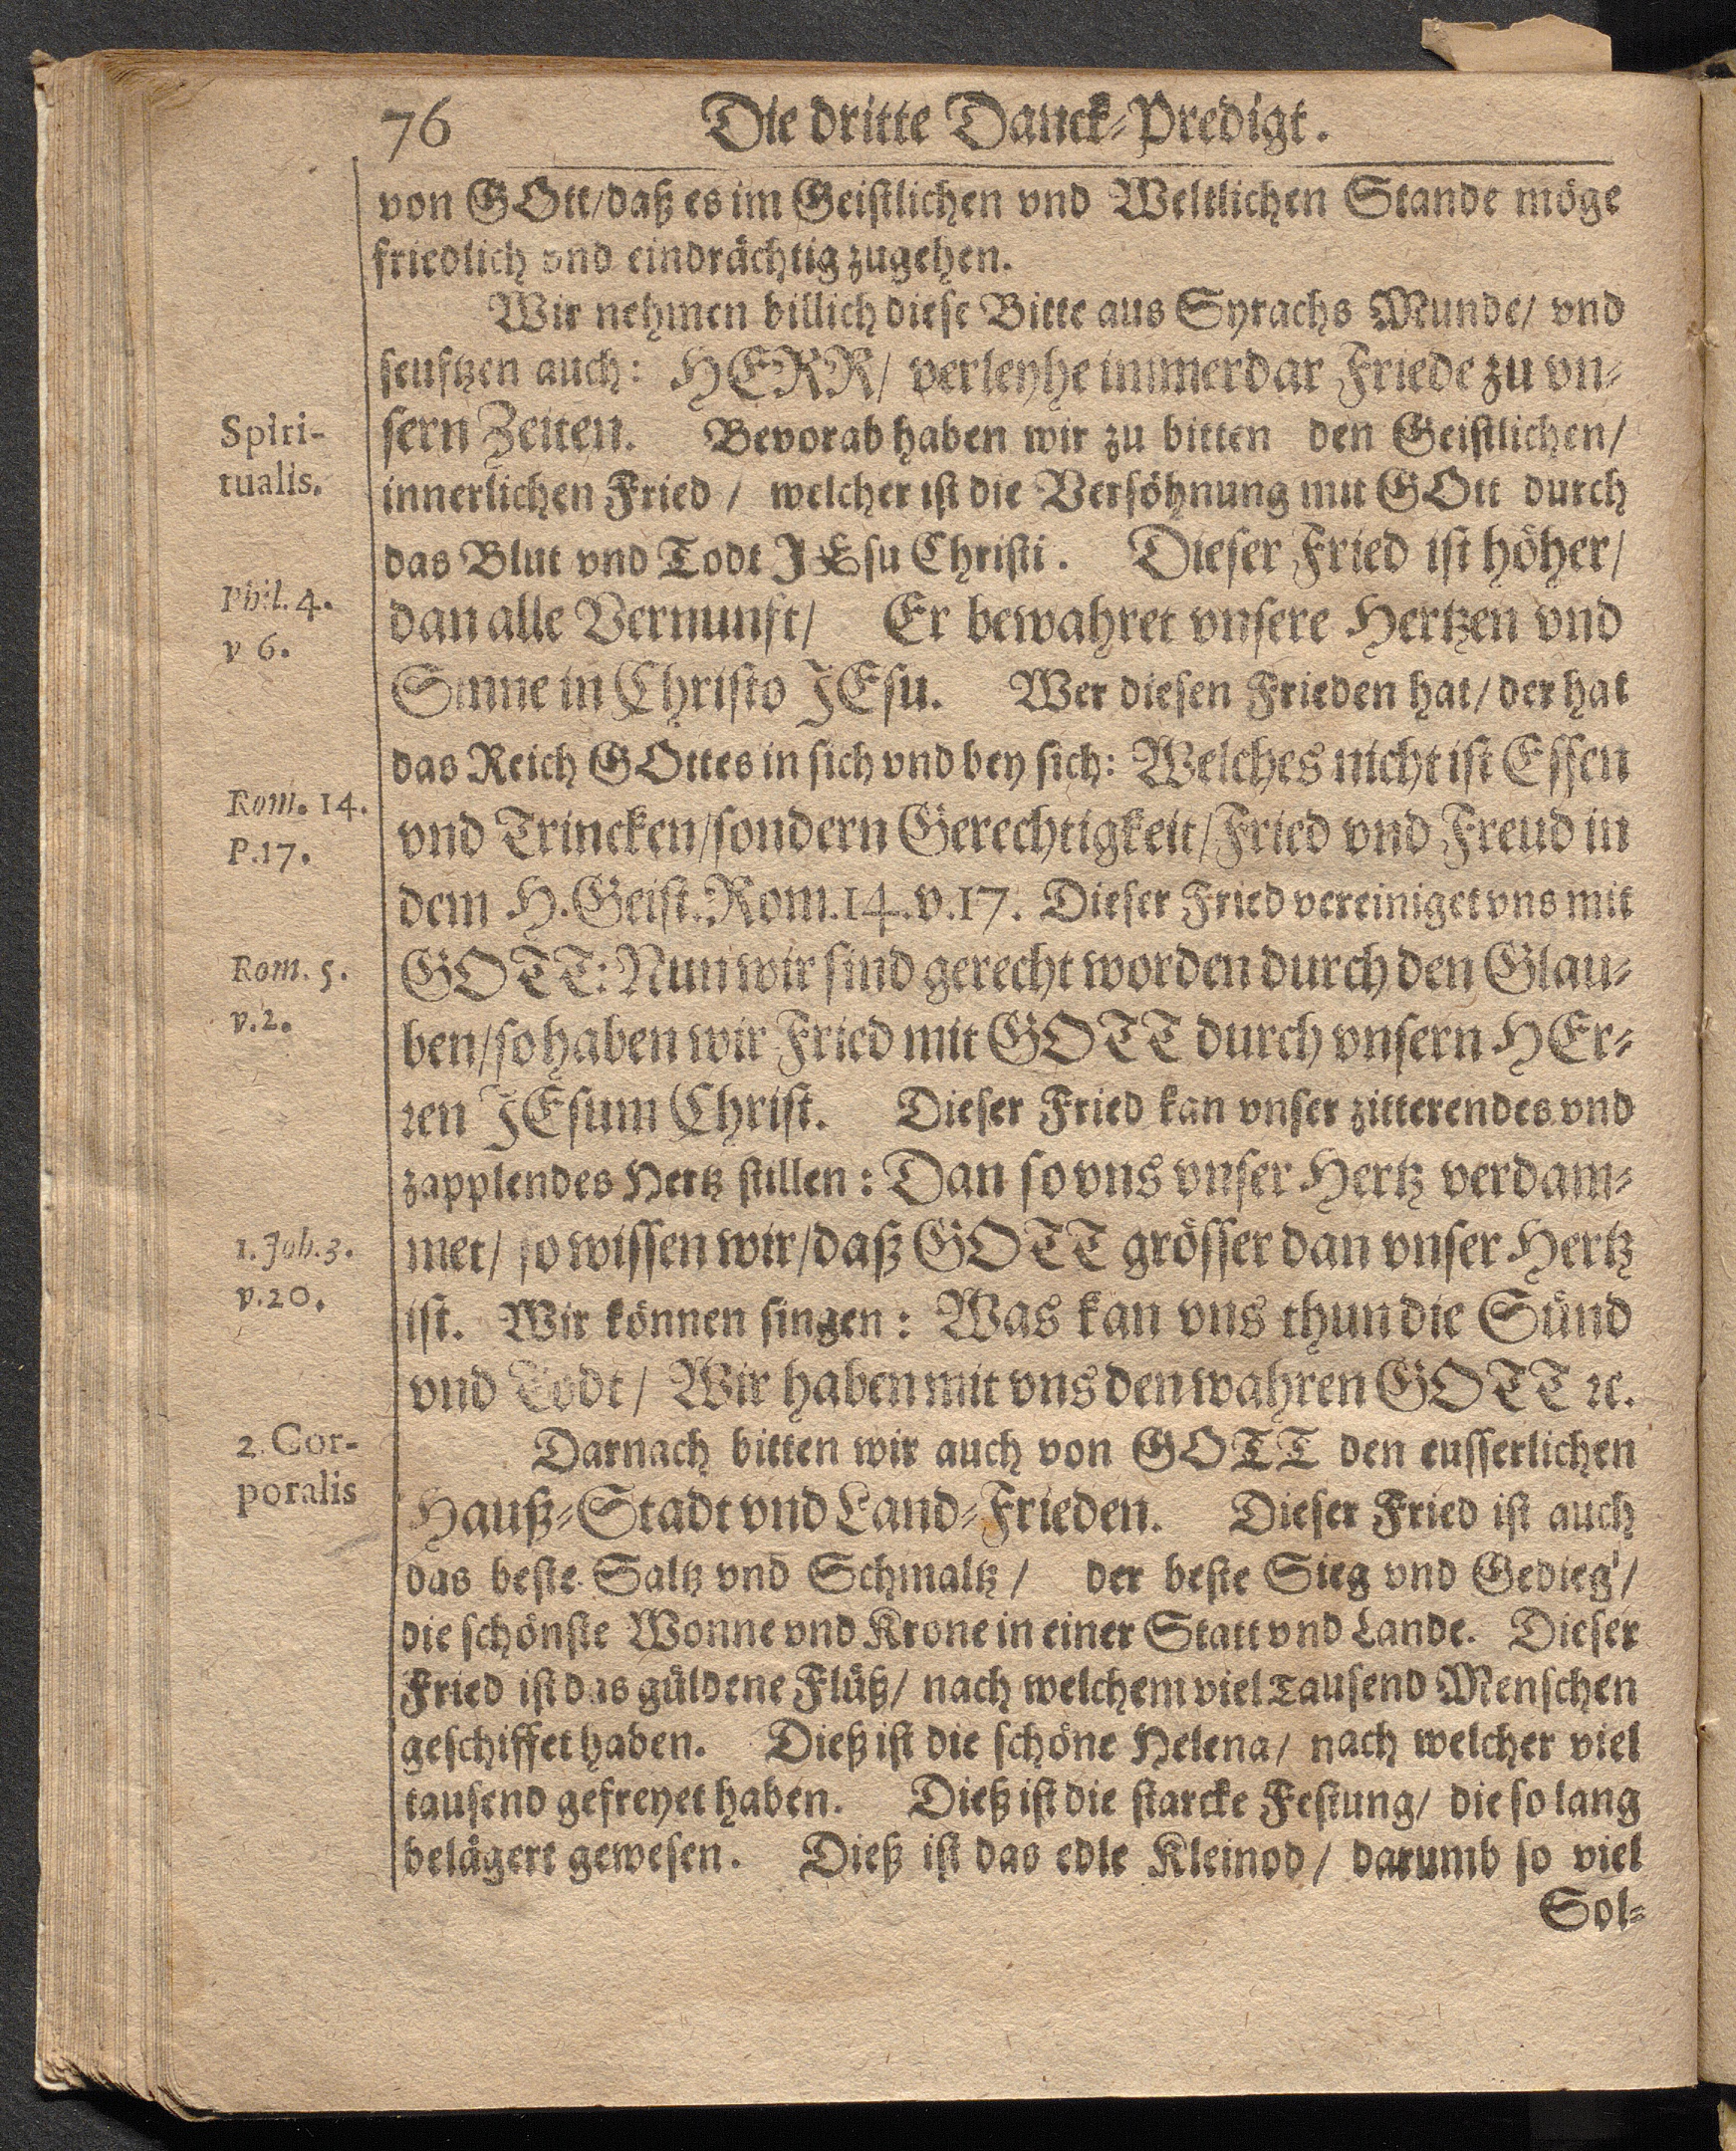 76 Die dritte Danck-Predigt.
von GOtt/ daß es im Geistlichen vnd Weltlichen Stande möge
friedlich vnd eindrächtig zugehen.
Wir nehmen billich diese Bitte aus Syrachs Munde/ vnd
seuftzen auch: HERR/ verleyhe immerdar Friede zu vn-
Spiri-
sern Zeiten. Bevorab haben wir zu bitten den Geistlichen/
tualis.
innerlichen Fried / welcher ist die Versöhnung mit GOtt durch
das Blut vnd Todt JEsu Christi. Dieser Fried ist höher/
Phil. 4.
dan alle Vernunft/ Er bewahret vnsere Hertzen vnd
v 6.
Sinne in Christo JEsu. Wer diesen Frieden hat/ der hat
das Reich GOttes in sich vnd bey sich: Welches nicht ist Essen
Rom. 14.
vnd Trincken/ sondern Gerechtigkeit/ Fried vnd Freud in
P.17.
dem H. Geist. Rom. 14. v. 17. Dieser Fried vereiniget vns mit
Rom. 5.
GOTT: Nun wir sind gerecht worden durch den Glau-
v.2.
ben/ so haben wir Fried mit GOTT durch vnsern HEr-
ren JEsum Christ. Dieser Fried kan vnser zitterendes vnd
zapplendes Hertz stillen: Dan so vns vnser Hertz verdam-
1. Joh. 3.
met/ so wissen wir/ daß GOTT grösser dan vnser Hertz
v.20.
ist. Wir können singen: Was kan vns thun die Sünd
vnd Todt/ Wir haben mit vns den wahren GOTT ꝛc.
2. Cor-
Darnach bitten wir auch von GOTT den eusserlichen
poralis
Hauß-Stadt vnd Land-Frieden. Dieser Fried ist auch
das beste Saltz vnd Schmaltz / der beste Sieg vnd Gedieg'/
die schönste Wonne vnd Krone in einer Statt vnd Lande. Dieser
Fried ist das güldene Flüß/ nach welchem viel Tausend Menschen
geschiffet haben. Dieß ist die schöne Helena/ nach welcher viel
tausend gefreyet haben. Dieß ist die starcke Festung/ die so lang
belägert gewesen. Dieß ist das edle Kleinod/ darumb so viel
Sol-